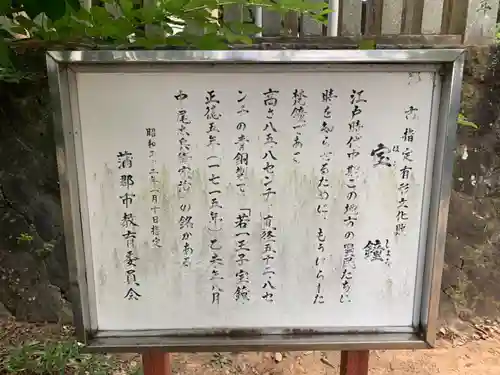 市指定有形文化財
宝鐘
ほう しょう
江戸時代中期この地方の農民たちに
時を知らせるために、もうけられた
梵鐘である
高さ八五八センチ、直径五十二八セ
ンチの青銅製で、「若一王子宝鐘
正徳五年（一七一五年）乙未八月
中尾太兵衛家治」の銘がある
昭和三二年一月十日指定
蒲郡市教育委員会